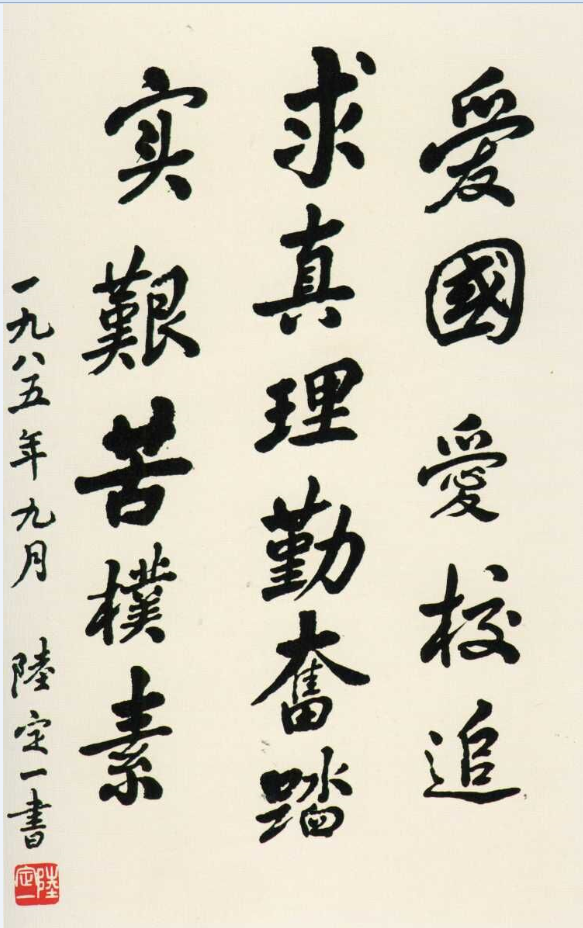 愛國愛校追
求真理勤奮踏
实艱苦樸素
一九八五年九月 陸定一書
陸定一